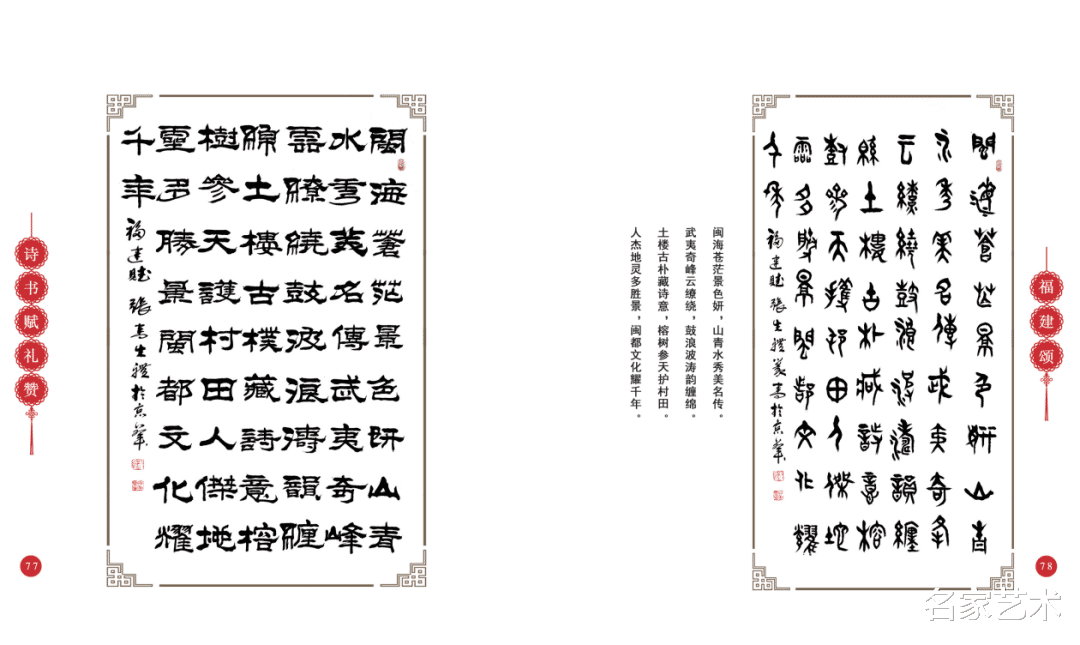 诗书赋礼赞
77
閩海蒼茫景色妍山青
水秀美名傳武夷奇峰
雲繚繞鼓波浪濤韻纏
綿土樓古樸藏詩意榕
樹參天護村田人傑地
靈多勝景閩都文化耀
千年 福建賦 張 生 於京華
福建颂
78
閩海蒼茫景色妍山青
水秀美名傳武夷奇峰
云繚繞鼓浪濤韻纏
綿土樓古朴藏詩意榕
樹參天護村田人傑地
靈多勝景閩都文化耀
千年 福建賦 張生 篆書於京華
闽海苍茫景色妍，山青水秀美名传。
武夷奇峰云缭绕，鼓浪波涛韵缠绵。
土楼古朴藏诗意，榕树参天护村田。
人杰地灵多胜景，闽都文化耀千年。
名家艺术